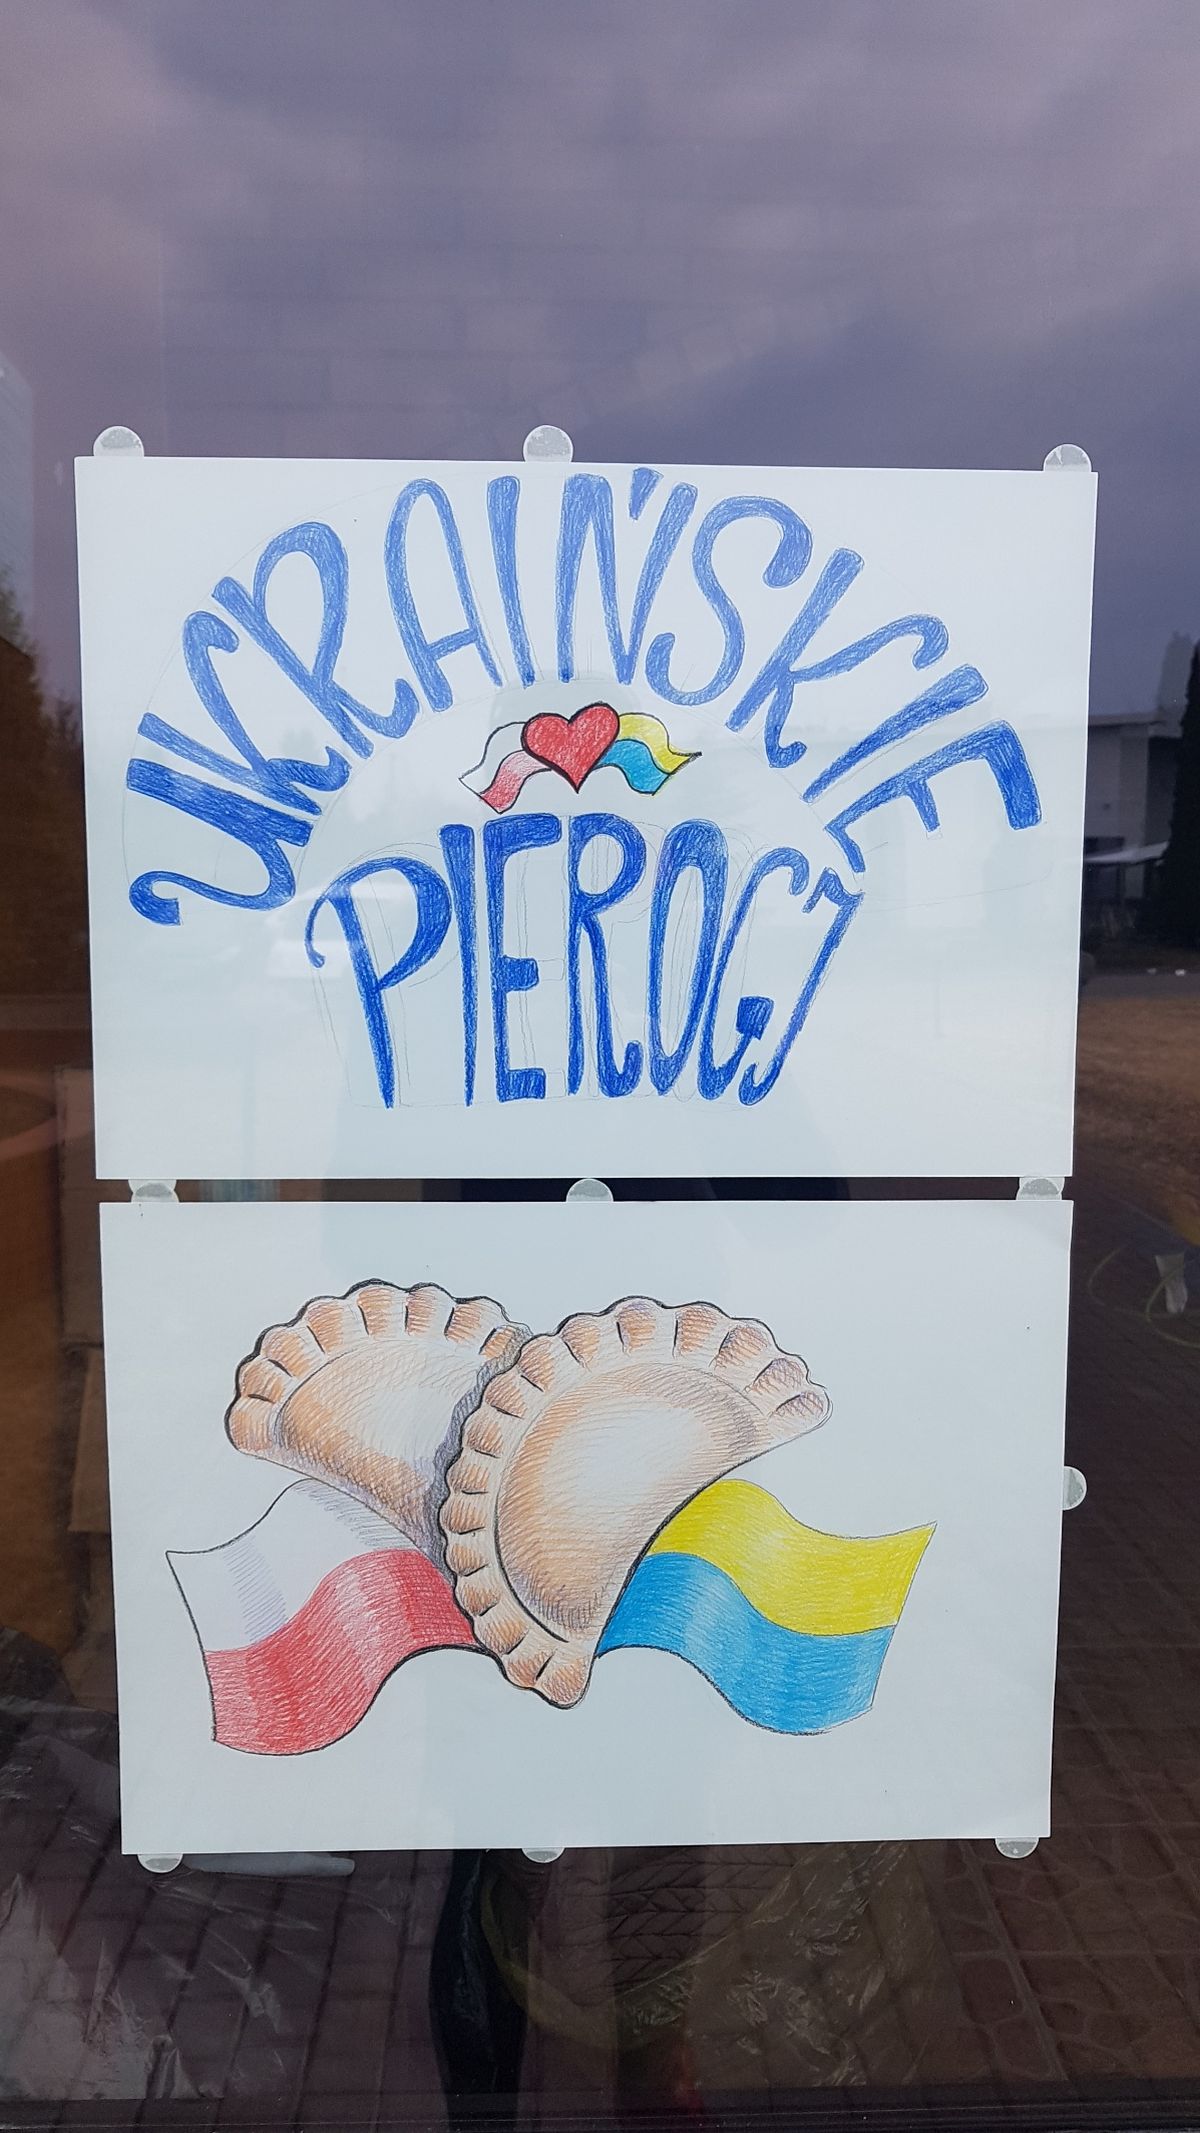 UKRAIŃSKIE
PIEROGI